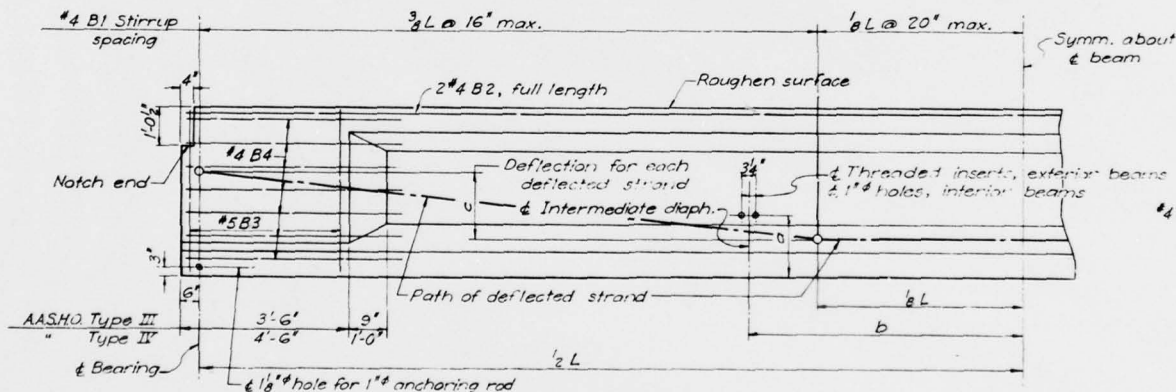 #4 B1 Stirrup
spacing
3/8 L @ 16" max.
1/8 L @ 20" max.
Symm. about
℄ beam
4"
2 #4 B2, full length
Roughen surface
1'-0½"
#4 B4
Notch end
Deflection for each
deflected strand
3¼"
℄ Threaded inserts, exterior beams
℄ 1"⌀ holes, interior beams
#4
c
℄ Intermediate diaph.
#5 B3
a
3"
6"
Path of deflected strand
1/8 L
A.A.S.H.O. Type III
3'-6"
9"
" Type IV
4'-6"
1'-0"
b
½ L
℄ Bearing
℄ 1⅛"⌀ hole for 1"⌀ anchoring rod